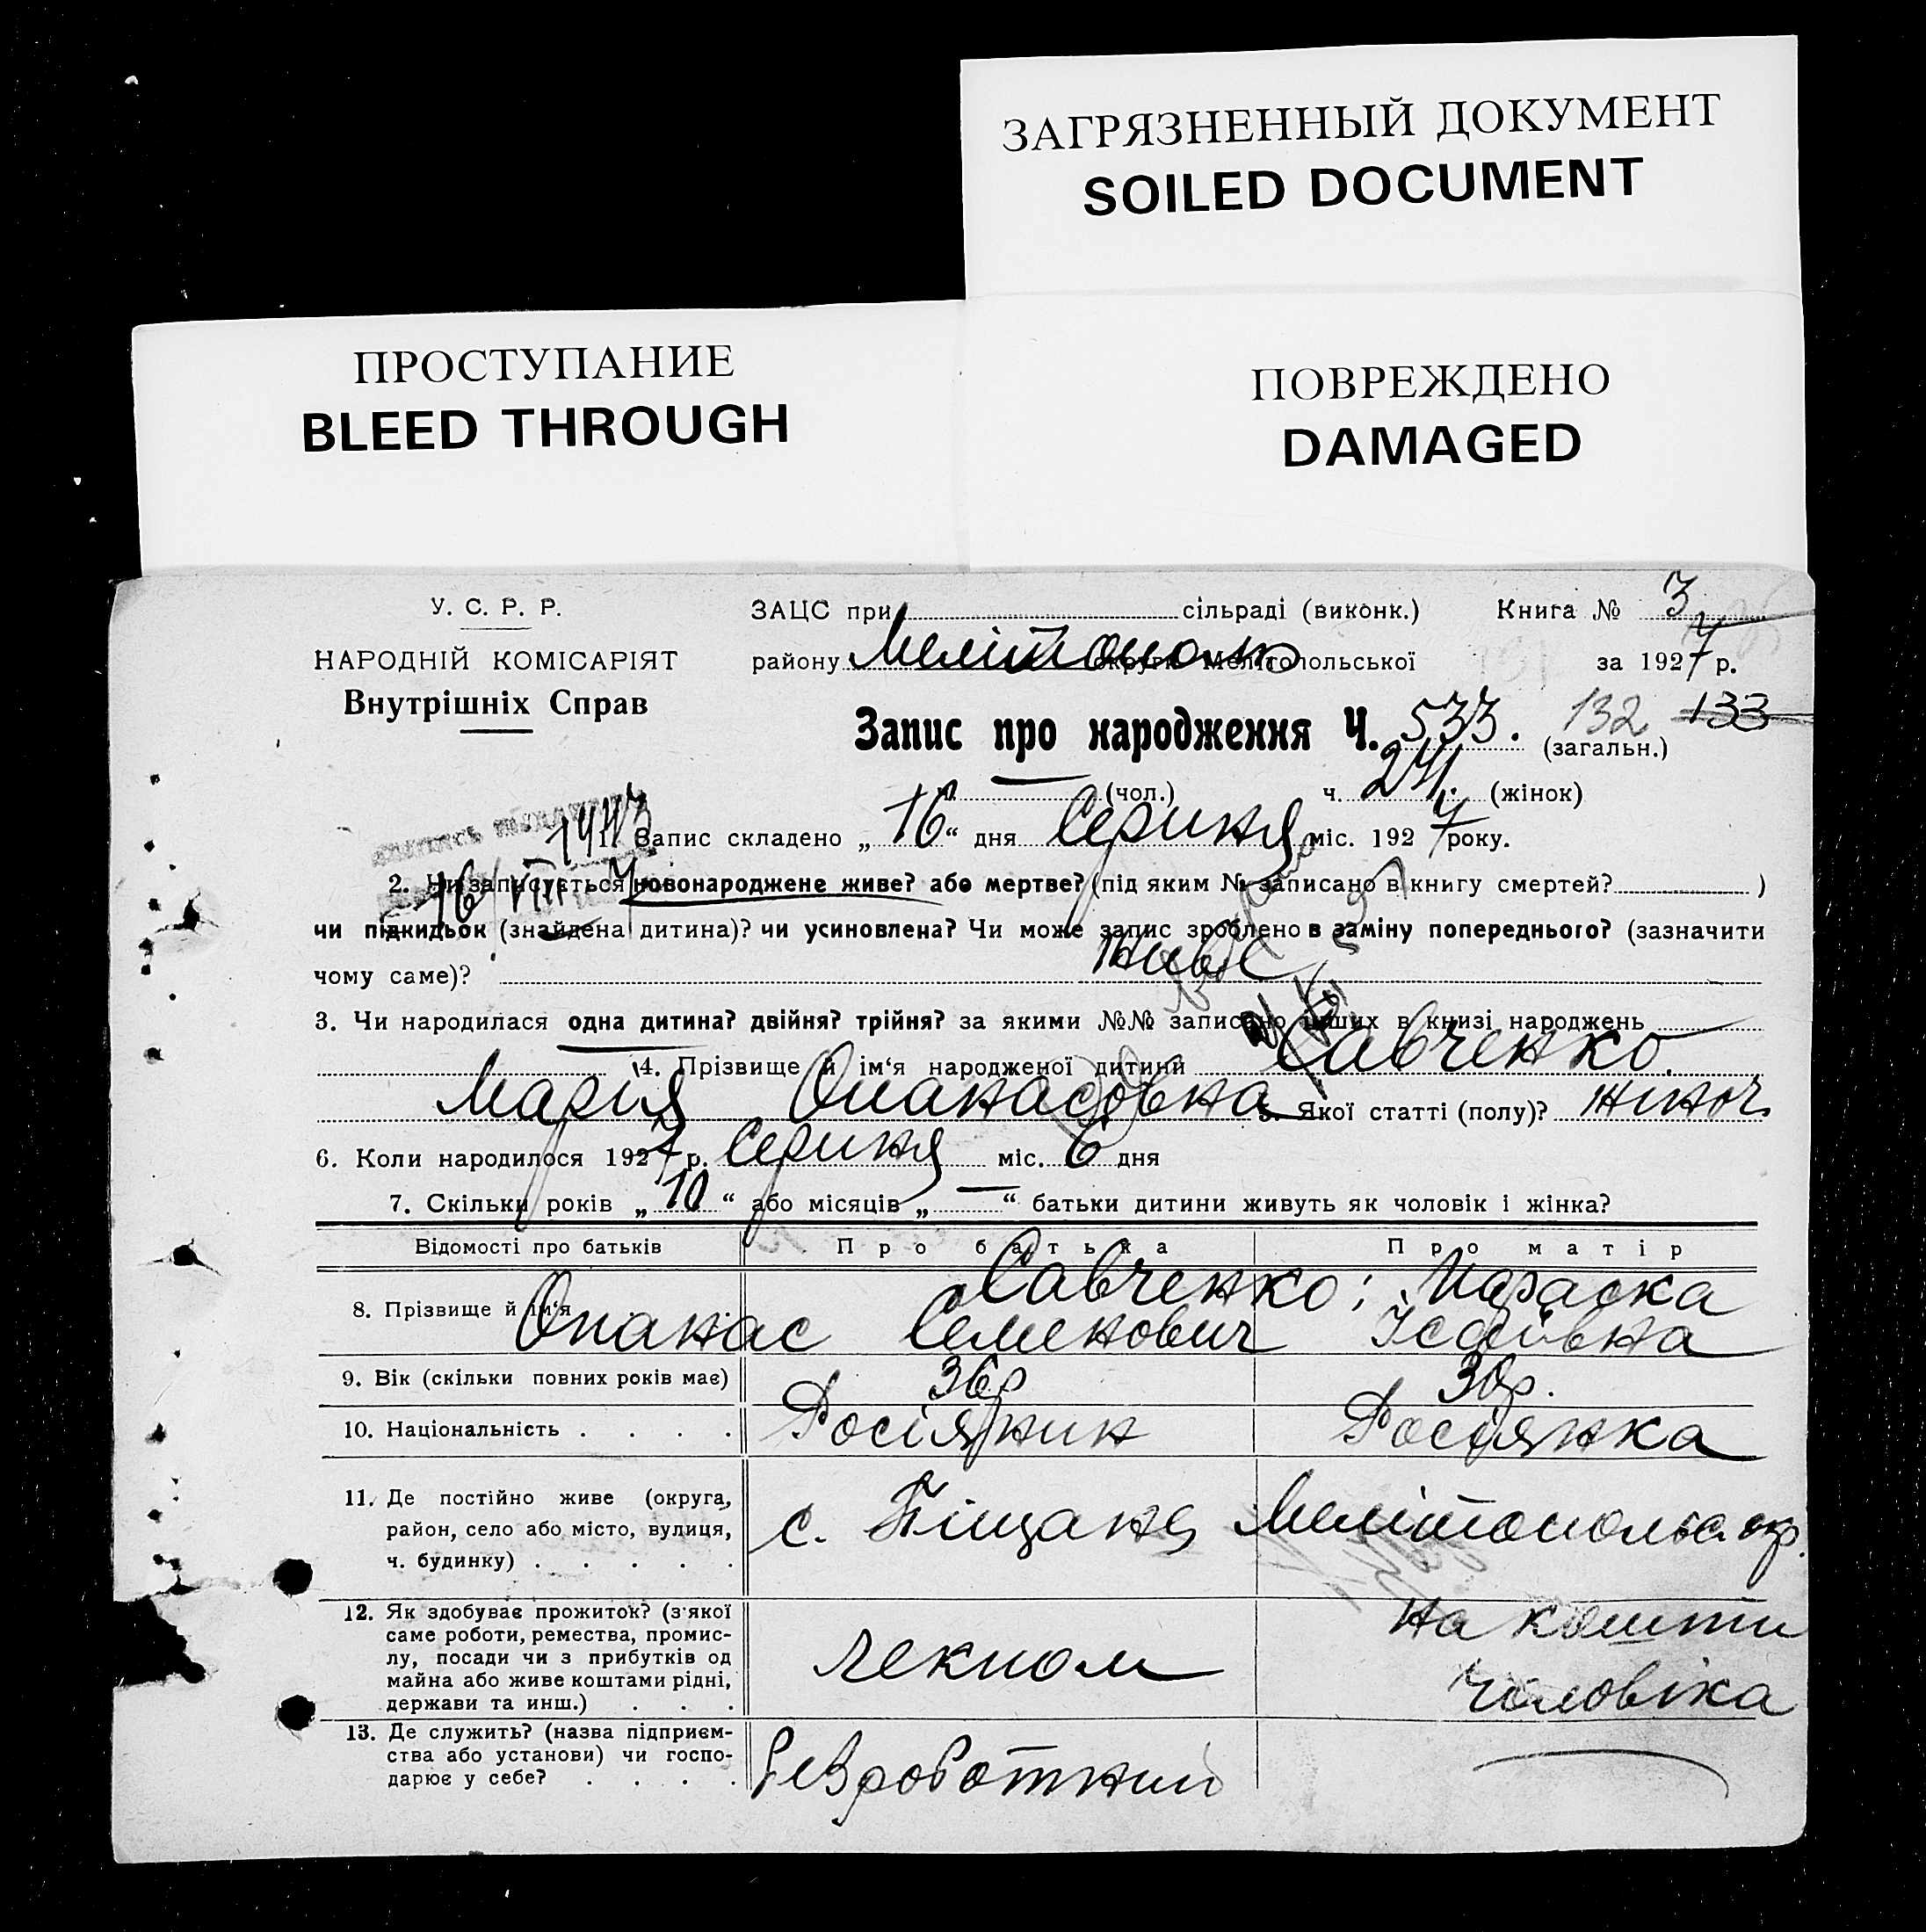 ЗАГРЯЗНЕННЫЙ ДОКУМЕНТ
SOILED DOCUMENT
ПРОСТУПАНИЕ
BLEED THROUGH
ПОВРЕЖДЕНО
DAMAGED
У. С. Р. Р.
НАРОДНІЙ КОМІСАРІЯТ
Внутрішніх Справ
ЗАЦС при сільраді (виконк.) Книга № 3
району Мелітополь округи Мелітопольської за 1927 р.
Запис про народження Ч. 533. (загальн.) 132 133
(чол.) ч. 241. (жінок)
Запис складено „16“ дня Серпня міс. 1927 року.
16/VIII
2. Чи записується новонароджене живе? або мертве? (під яким № записано в книгу смертей? )
чи підкидьок (знайдена дитина)? чи усиновлена? Чи може запис зроблено в заміну попереднього? (зазначити
чому саме)? Живе
3. Чи народилася одна дитина? двійня? трійня? за якими №№ записано інших в книзі народжень
4. Прізвище й ім‘я народженої дитини Савченко.
Марія Опанасовна 5. Якої статті (полу)? жіноч.
6. Коли народилося 1927 р. Серпня міс. 6 дня
7. Скільки років „10“ або місяців „—“ батьки дитини живуть як чоловік і жінка?
Відомості про батьків Про батька Про матір
8. Прізвище й ім‘я Савченко; Параска
Опанас Семенович Ісаївна
9. Вік (скільки повних років має) 36р 30р.
10. Національність . . . . Росіянин Росіянка
11. Де постійно живе (округа,
район, село або місто, вулиця,
ч. будинку) . . . . .
с. Піщане Мелітопольск. окр.
12. Як здобуває прожиток? (з якої
саме роботи, ремества, промис-
лу, посади чи з прибутків од
майна або живе коштами рідні,
держави та инш.) . . .
на кошти
чоловіка
13. Де служить? (назва підприєм-
ства або установи) чи госпо-
дарює у себе? . . . .
безроботний